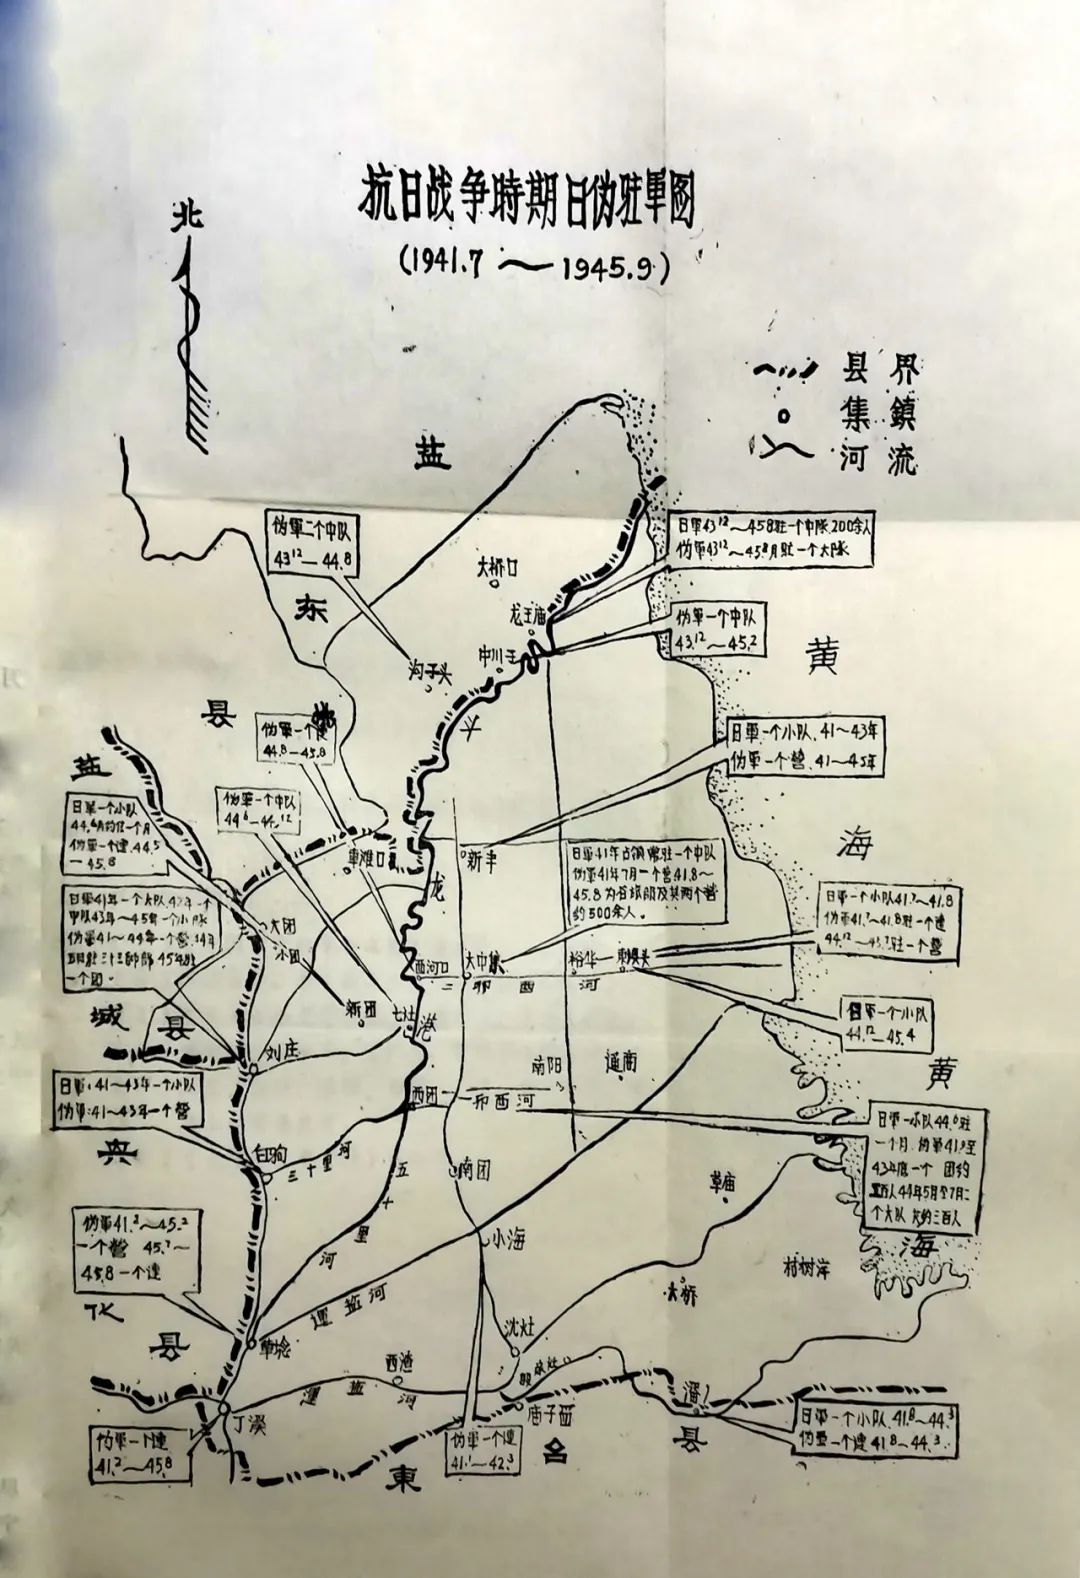 抗日战争時期日伪驻軍图
(1941.7～1945.9)
北
县界
集鎮
河流
盐
东
县
伪軍二个中队
43¹²—44.8
大桥口
龙王庙
中川王
沟子头
日軍43¹²～45.8驻一个中队200余人
伪軍43¹²～45.8月驻一个大队
伪軍一个中队
43.¹²～45.²
黄
海
伪軍一个连
44.8—45.8
伪軍一个中队
44⁶—44.¹²
日軍一个小队、41～43年
伪軍一个营、41～45年
盐
日軍一个小队
伪軍一个連、44.5
—45.8
大
龙
港
新丰
日軍41年占领
驻一个中队
伪軍41年7月一个营41.8～
约500余人。
日軍一个小队41.⁷～41.8
伪軍41.⁷～41.8驻一个連
驻一个营
日軍41年一个大队
中队43年～45年一个小队
伪軍41～44年一个营
一个团。
大团
小团
西河口
大中集
裕华
二卯酉河
新团
七灶
一个小队
44.¹²—45.4
城
县
刘庄
南阳
通商
黄
海
日軍：41～43年一个小队
伪軍：41～43年一个营
西团
一卯酉河
日軍一小队44.⁶驻
一个月、伪軍41.⁹至
43年底一个团约
44年5月至7月二
个大队 约三百人
白驹
三十里河
五十里河
南团
草庙
伪軍41.²～45.²
一个营 45.⁷～
45.8一个連
小海
大桥
县
草埝
運盐河
沈灶
西渣
運盐河
丁溪
庙子
潘
县
東
台
伪軍一个連
41.²～45.8
伪軍一个連
41.¹—42.³
日軍一个小队 41.8～44.³
伪軍一个連41.8～44.3.